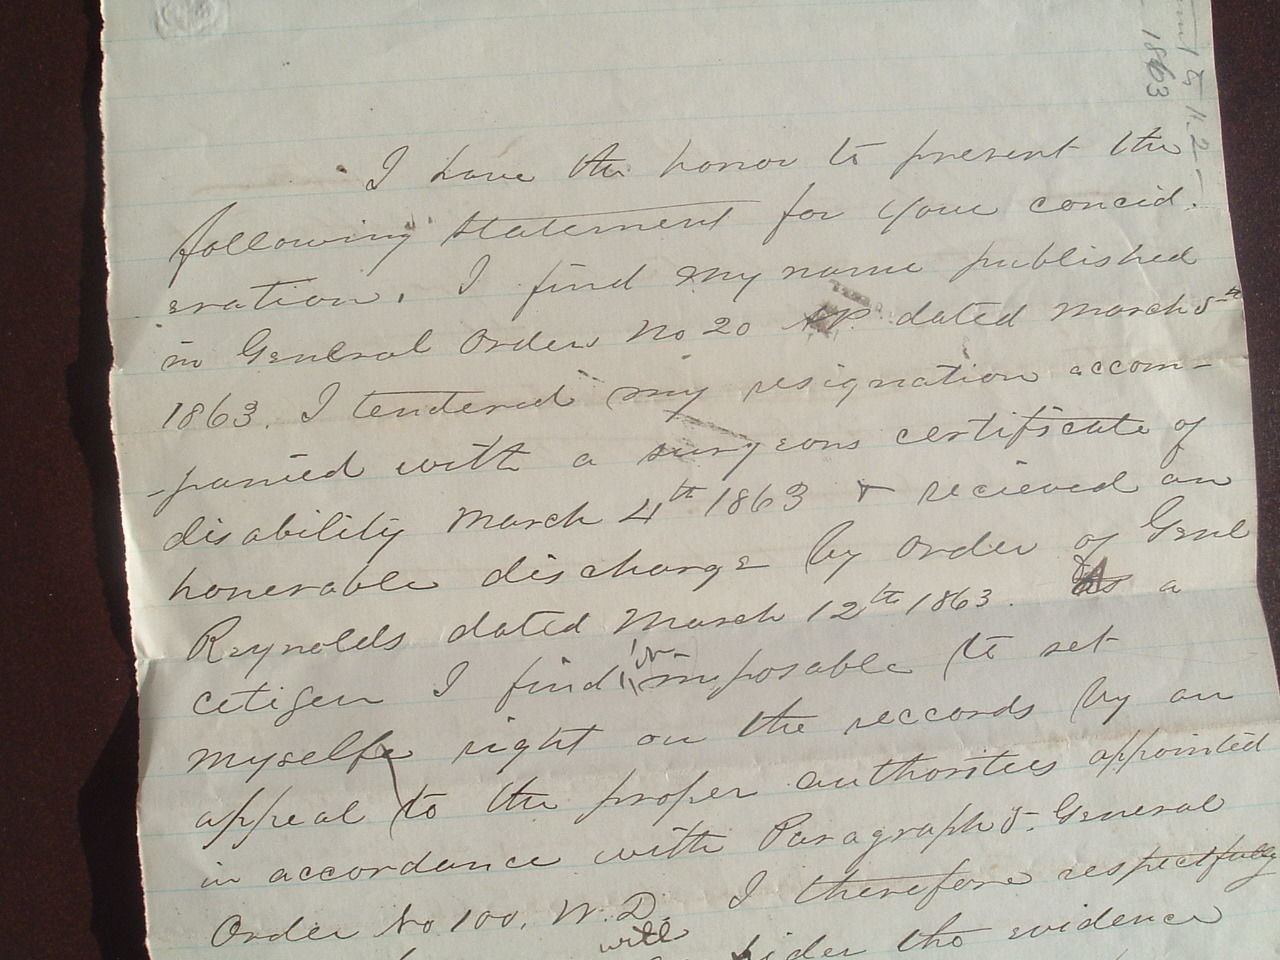 I have the honor to present the
following statement for your concid.
eration. I find my name published
in General Order No 20 dated March 5th
1863. I tendered my resignation accom-
-panied with a surgeons certificate of
disability March 4th 1863 & recieved an
honerable discharge by order of Genl
Reynolds dated March 12th 1863. As a
citizen I find imposable to set
myselfe right on the reccords by an
appeal to the proper authorities appointed
in accordance with Paragraph 5. General
Order No 100. W.D. I therefore respectfully
will
the evidence
1863